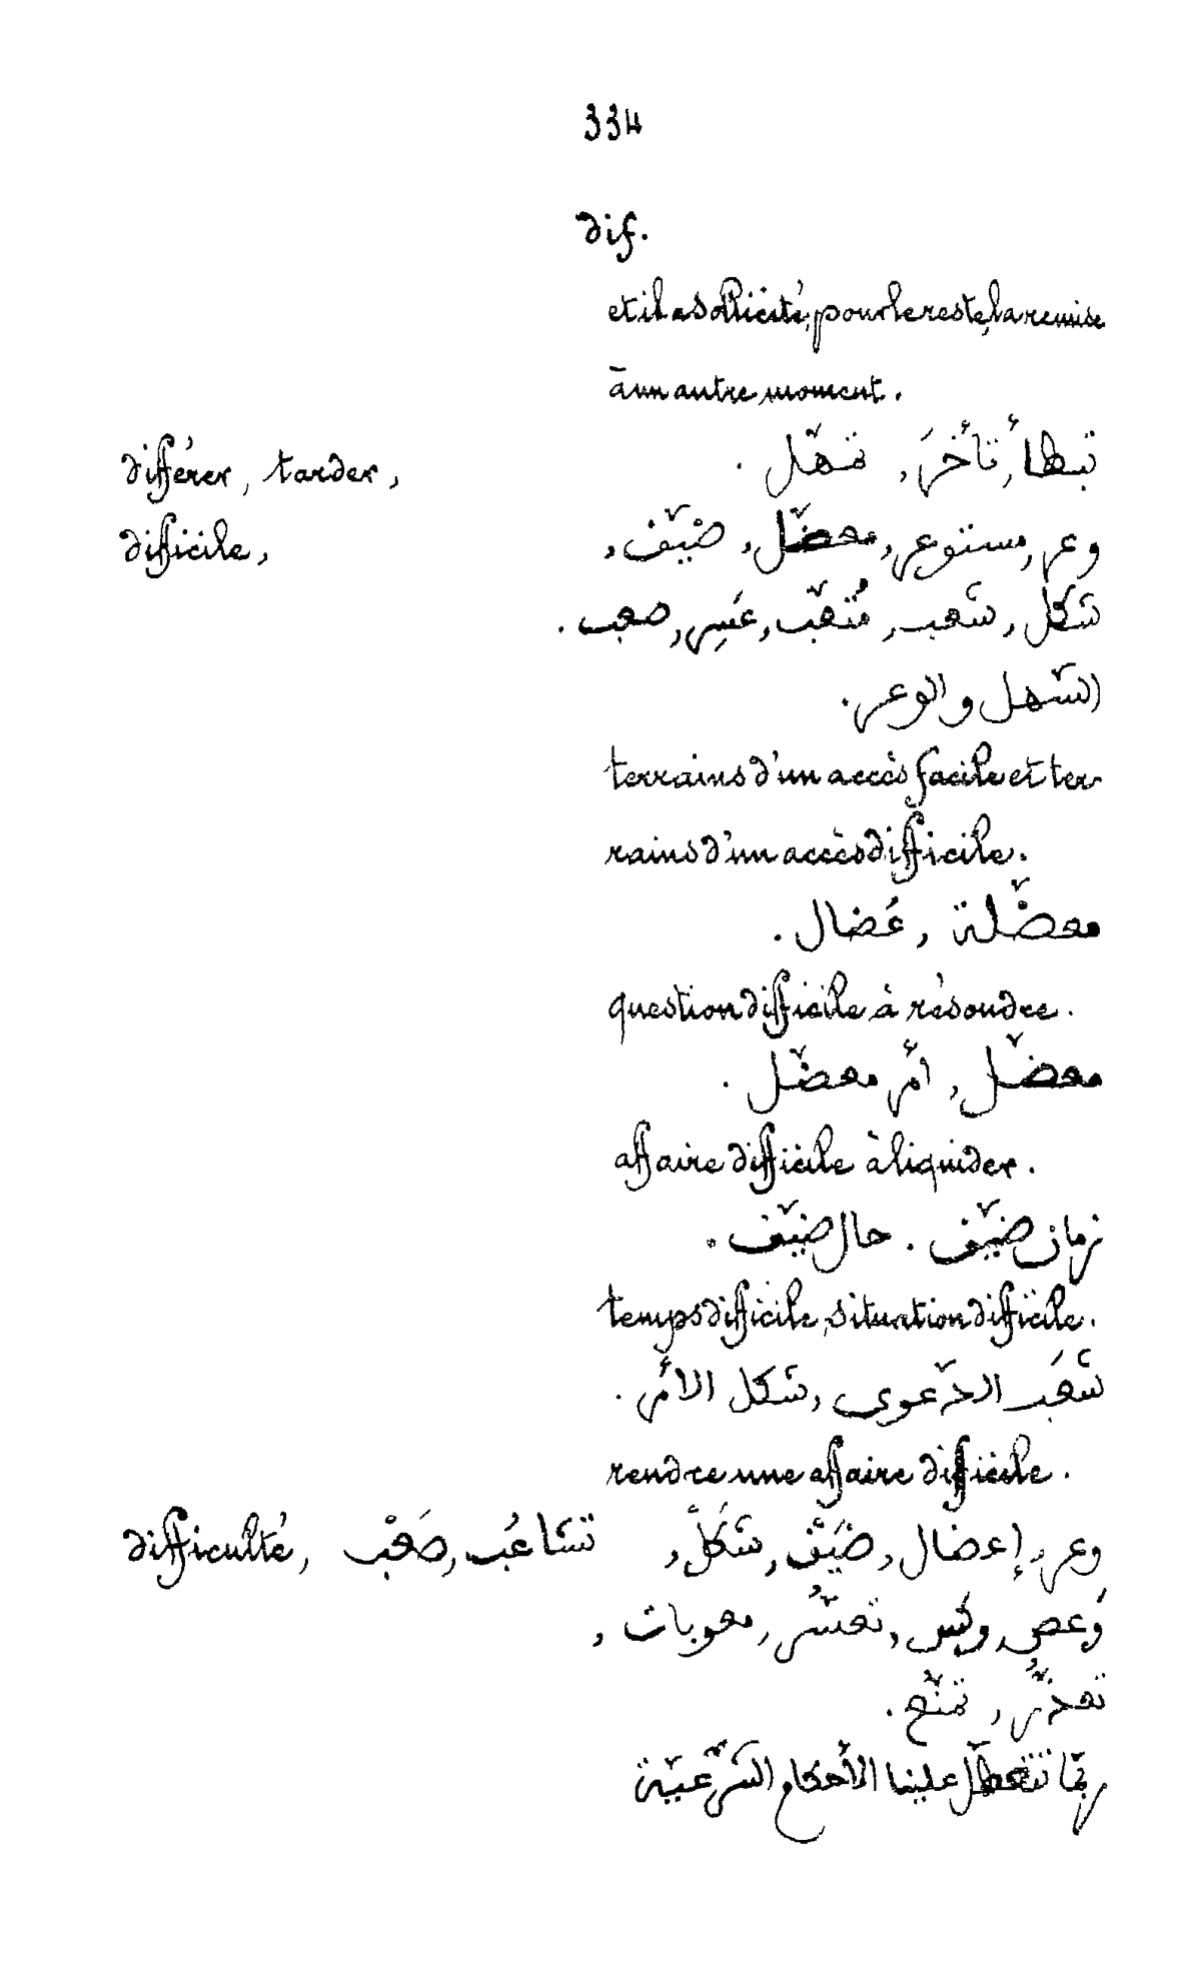 334
dif.
et il a sollicité, pour le reste, la remise
à un autre moment.
différer, tarder, تبطأ, تأخرَ, تمهّل.
difficile, وعر, مستوعر, معضّل, ضيّف,
شكل, شعب, مُتعّب, عَسِر, صعب.
السّهل والوعر.
terrains d'un accès facile et ter-
rains d'un accès difficile.
معضّلة, عُضال.
question difficile à résoudre.
معضّل, أمر معضّل.
affaire difficile à liquider.
زمان ضيّف. حال ضيّف.
temps difficile, situation difficile.
شعَب الدّعوى, شكل الأمر.
rendre une affaire difficile.
difficulté, وعر, إعضال, ضَيْف, شَكْل, تشاعُب, صَعْب
وَعص, تعسّر, صعوبات,
تعذّر, تمنّع.
ربّما تتعطّل علينا الأحكام الشّرعيّة